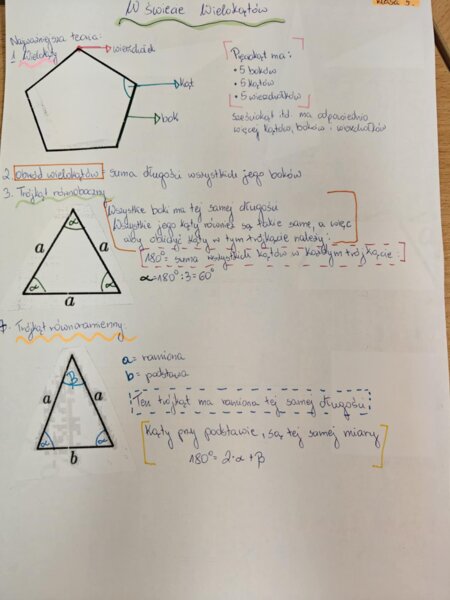 W świecie Wielokątów
klasa 5.
Najważniejsza teoria:
1. Wielokąty
wierzchołek
kąt
bok
Pięciokąt ma:
• 5 boków
• 5 kątów
• 5 wierzchołków
sześciokąt itd. ma odpowiednio
więcej kątów, boków i wierzchołków
2. Obwód wielokątów - suma długości wszystkich jego boków
3. Trójkąt równoboczny
Wszystkie boki ma tej samej długości
Wszystkie jego kąty również są takie same, a więc
aby obliczyć kąty w tym trójkącie należy:
180° = suma wszystkich kątów w każdym trójkącie:
α = 180° : 3 = 60°
α
a a
α α
a
Trójkąt równoramienny
a = ramiona
b = podstawa
Ten trójkąt ma ramiona tej samej długości
Kąty przy podstawie, są tej samej miary
180° = 2·α + β
β
a a
α α
b